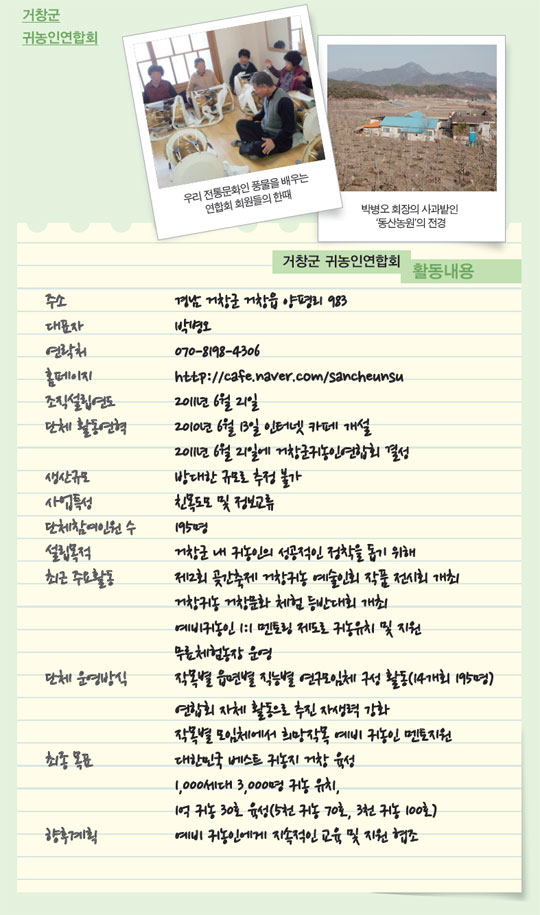 거창군
귀농인연합회
우리 전통문화인 풍물을 배우는
연합회 회원들의 한때
박병오 회장의 사과밭인
'동산농원'의 전경
거창군 귀농인연합회
활동내용
주소 경남 거창군 거창읍 양평리 983
대표자 박병오
연락처 070-8198-4306
홈페이지 http://cafe.naver.com/sancheunsu
조직설립연도 2011년 6월 21일
단체 활동연혁 2010년 6월 13일 인터넷 카페 개설
2011년 6월 21일에 거창군귀농인연합회 결성
생산규모 방대한 규모로 추정 불가
사업특성 친목도모 및 정보교류
단체참여인원 수 195명
설립목적 거창군 내 귀농인의 성공적인 정착을 돕기 위해
최근 주요활동 제2회 곶간축제 거창귀농 예술인회 작품 전시회 개최
거창귀농 거창문화 체험 등반대회 개최
예비귀농인 1:1 멘토링 제도로 귀농유치 및 지원
무료체험농장 운영
단체 운영방식 작목별 읍면별 직능별 연구모임체 구성 활동(14개회 195명)
연합회 자체 활동으로 추진 자생력 강화
작목별 모임체에서 희망작목 예비 귀농인 멘토지원
최종 목표 대한민국 베스트 귀농지 거창 육성
1,000세대 3,000명 귀농 유치,
1억 귀농 30호 육성(5천 귀농 70호, 3천 귀농 100호)
향후계획 예비 귀농인에게 지속적인 교육 및 지원 협조